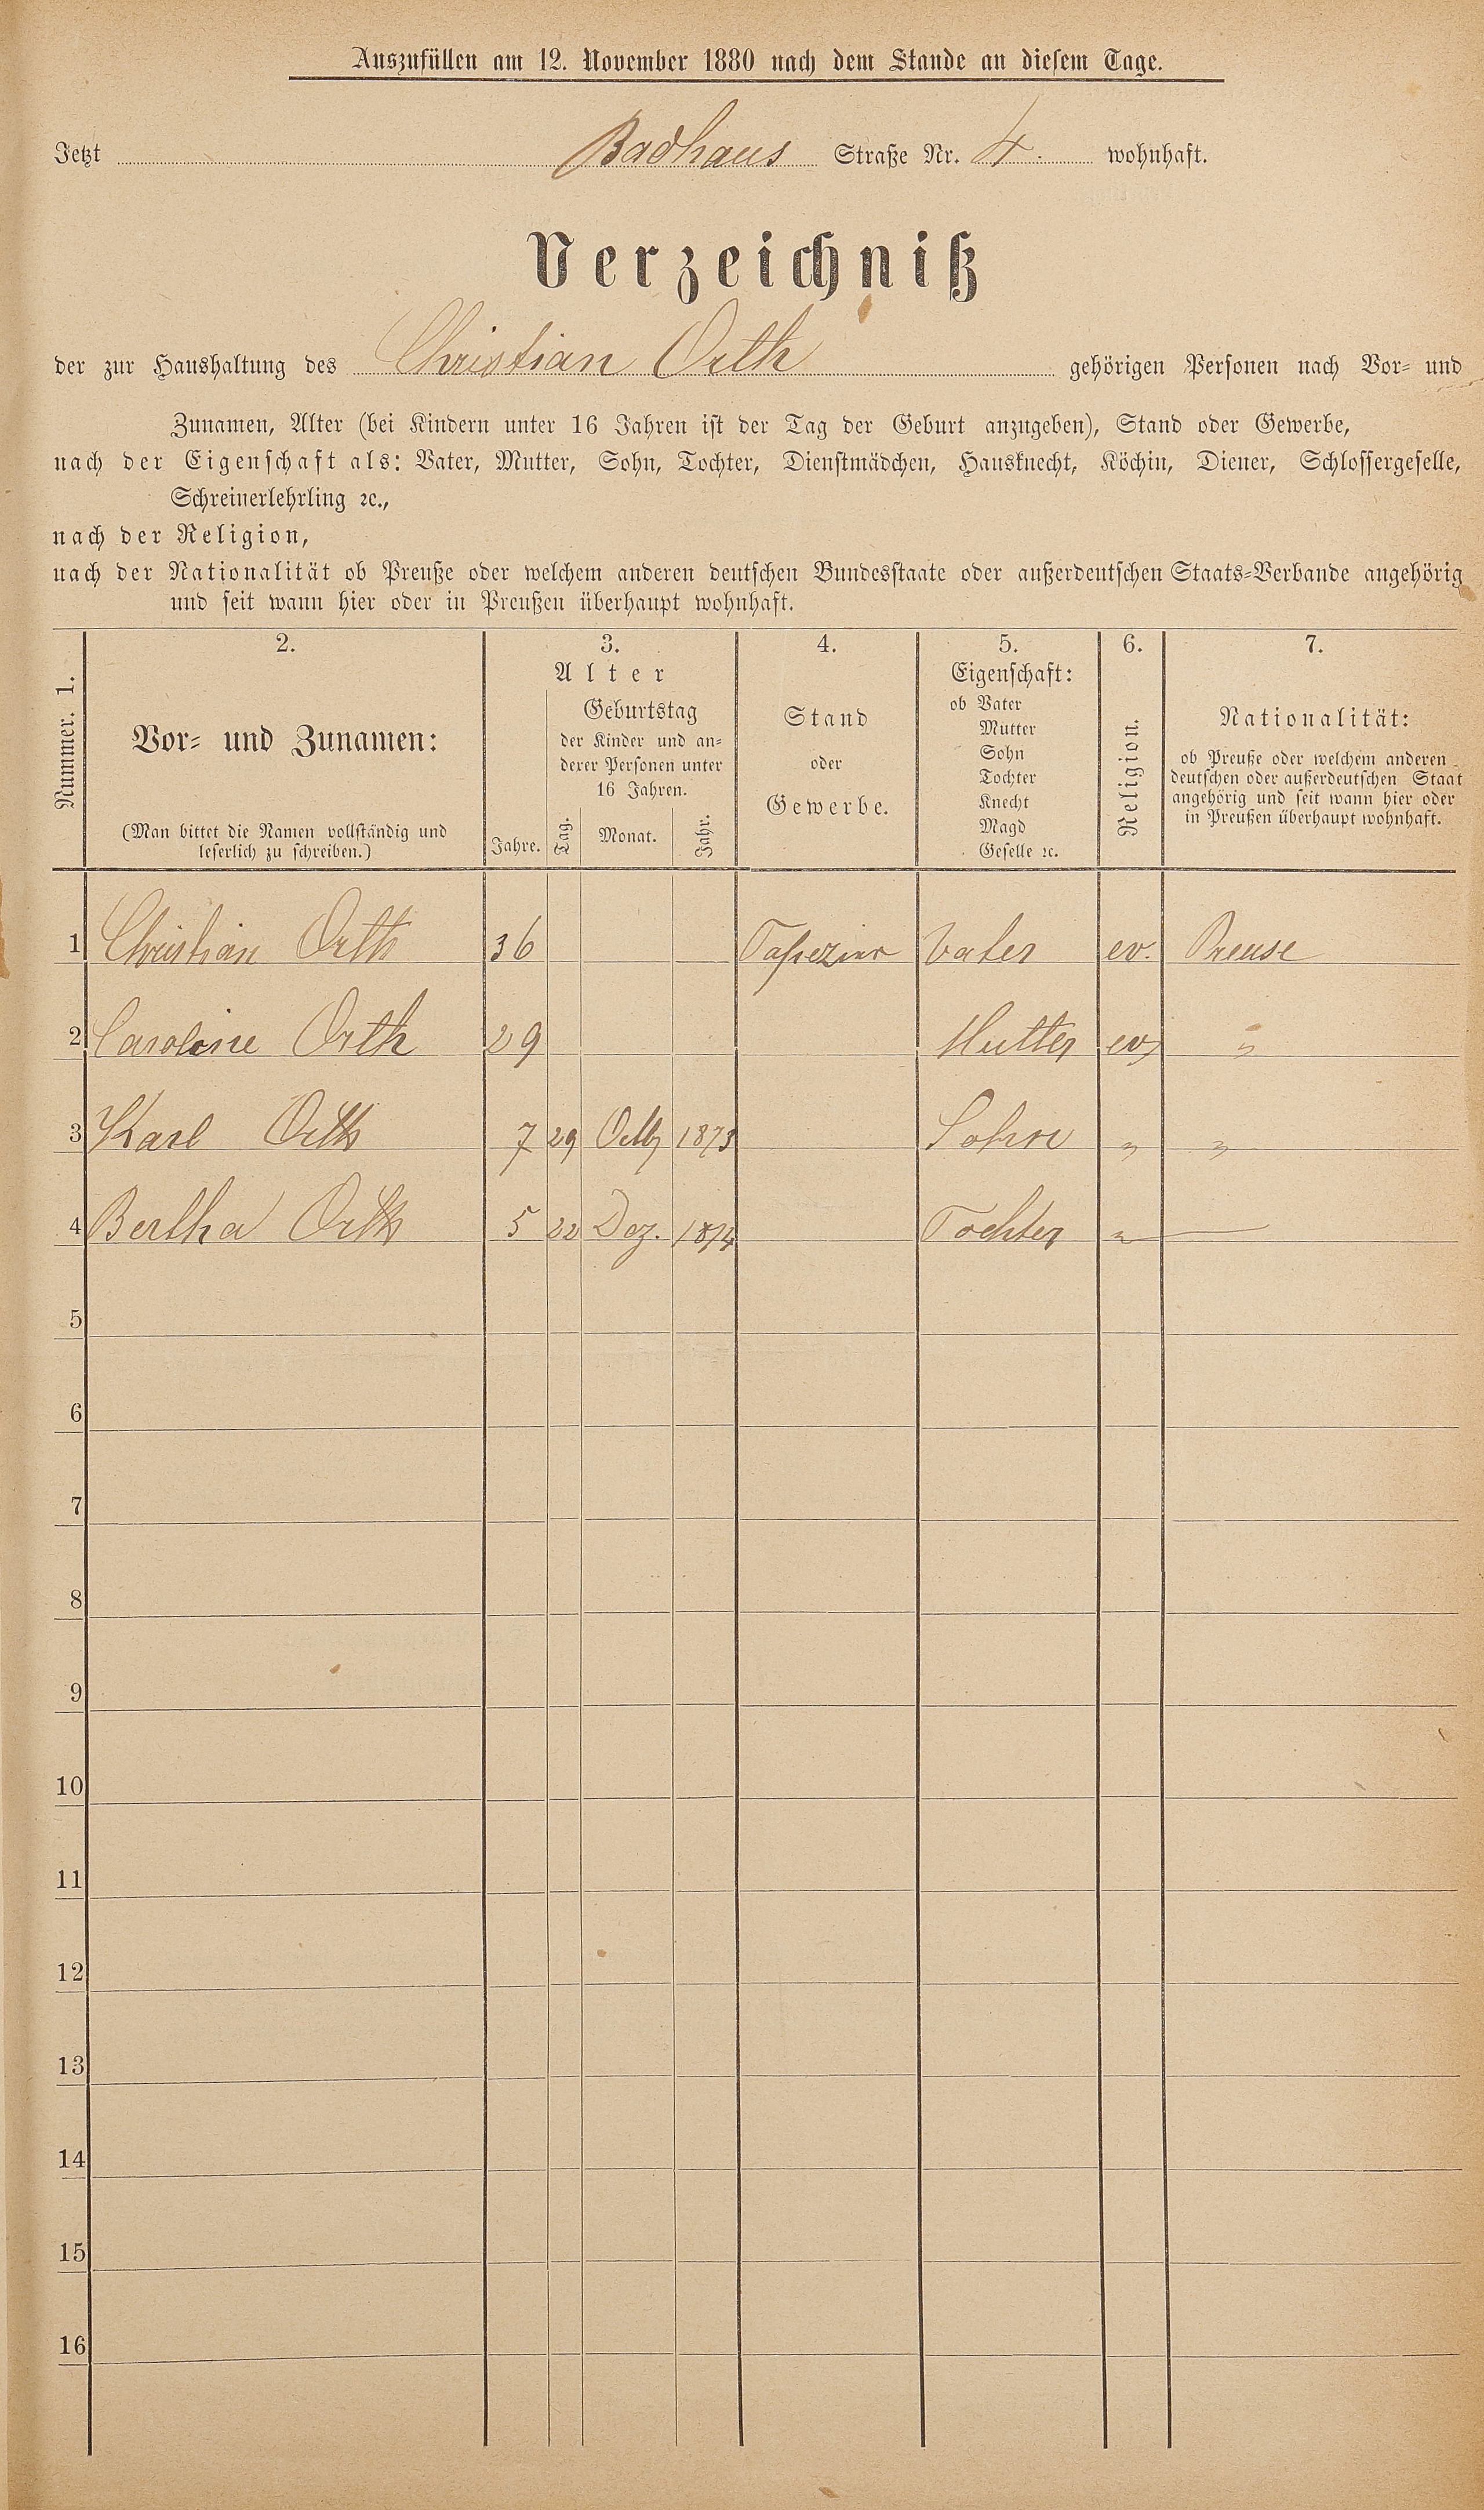 Auszufüllen am 12. November 1880 nach dem Stande an diesem Tage.
Jetzt Badhaus Straße Nr. 4. wohnhaft.
Verzeichniß
der zur Haushaltung des Christian Orth gehörigen Personen nach Vor- und
Zunamen, Alter (bei Kindern unter 16 Jahren ist der Tag der Geburt anzugeben), Stand oder Gewerbe,
nach der Eigenschaft als: Vater, Mutter, Sohn, Tochter, Dienstmädchen, Hausknecht, Köchin, Diener, Schlossergeselle,
Schreinerlehrling ꝛc.,
nach der Religion,
nach der Nationalität ob Preuße oder welchem anderen deutschen Bundesstaate oder außerdeutschen Staats-Verbande angehörig
und seit wann hier oder in Preußen überhaupt wohnhaft.
Nummer. 1.
2.
Vor- und Zunamen:
(Man bittet die Namen vollständig und
leserlich zu schreiben.)
3.
Alter
Geburtstag
der Kinder und an-
derer Personen unter
16 Jahren.
Jahre. Tag. Monat. Jahr.
4.
Stand
oder
Gewerbe.
5.
Eigenschaft:
ob Vater
Mutter
Sohn
Tochter
Knecht
Magd
Geselle ꝛc.
6.
Religion.
7.
Nationalität:
ob Preuße oder welchem anderen
deutschen oder außerdeutschen Staat
angehörig und seit wann hier oder
in Preußen überhaupt wohnhaft.
1 Christian Orth 36 Tapezier Vater ev. Preuse
2 Caroline Orth 29 Mutter ev. "
3 Karl Orth 7 29 Octb 1873 Sohn " "
4 Bertha Orth 5 22 Dez. 1874 Tochter " —
5
6
7
8
9
10
11
12
13
14
15
16